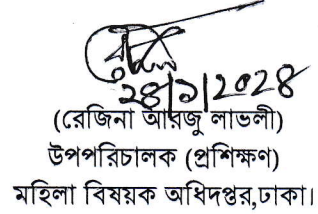 ২৪|১|২০২৪
(রেজিনা আরজু লাভলী)
উপপরিচালক (প্রশিক্ষণ)
মহিলা বিষয়ক অধিদপ্তর,ঢাকা।